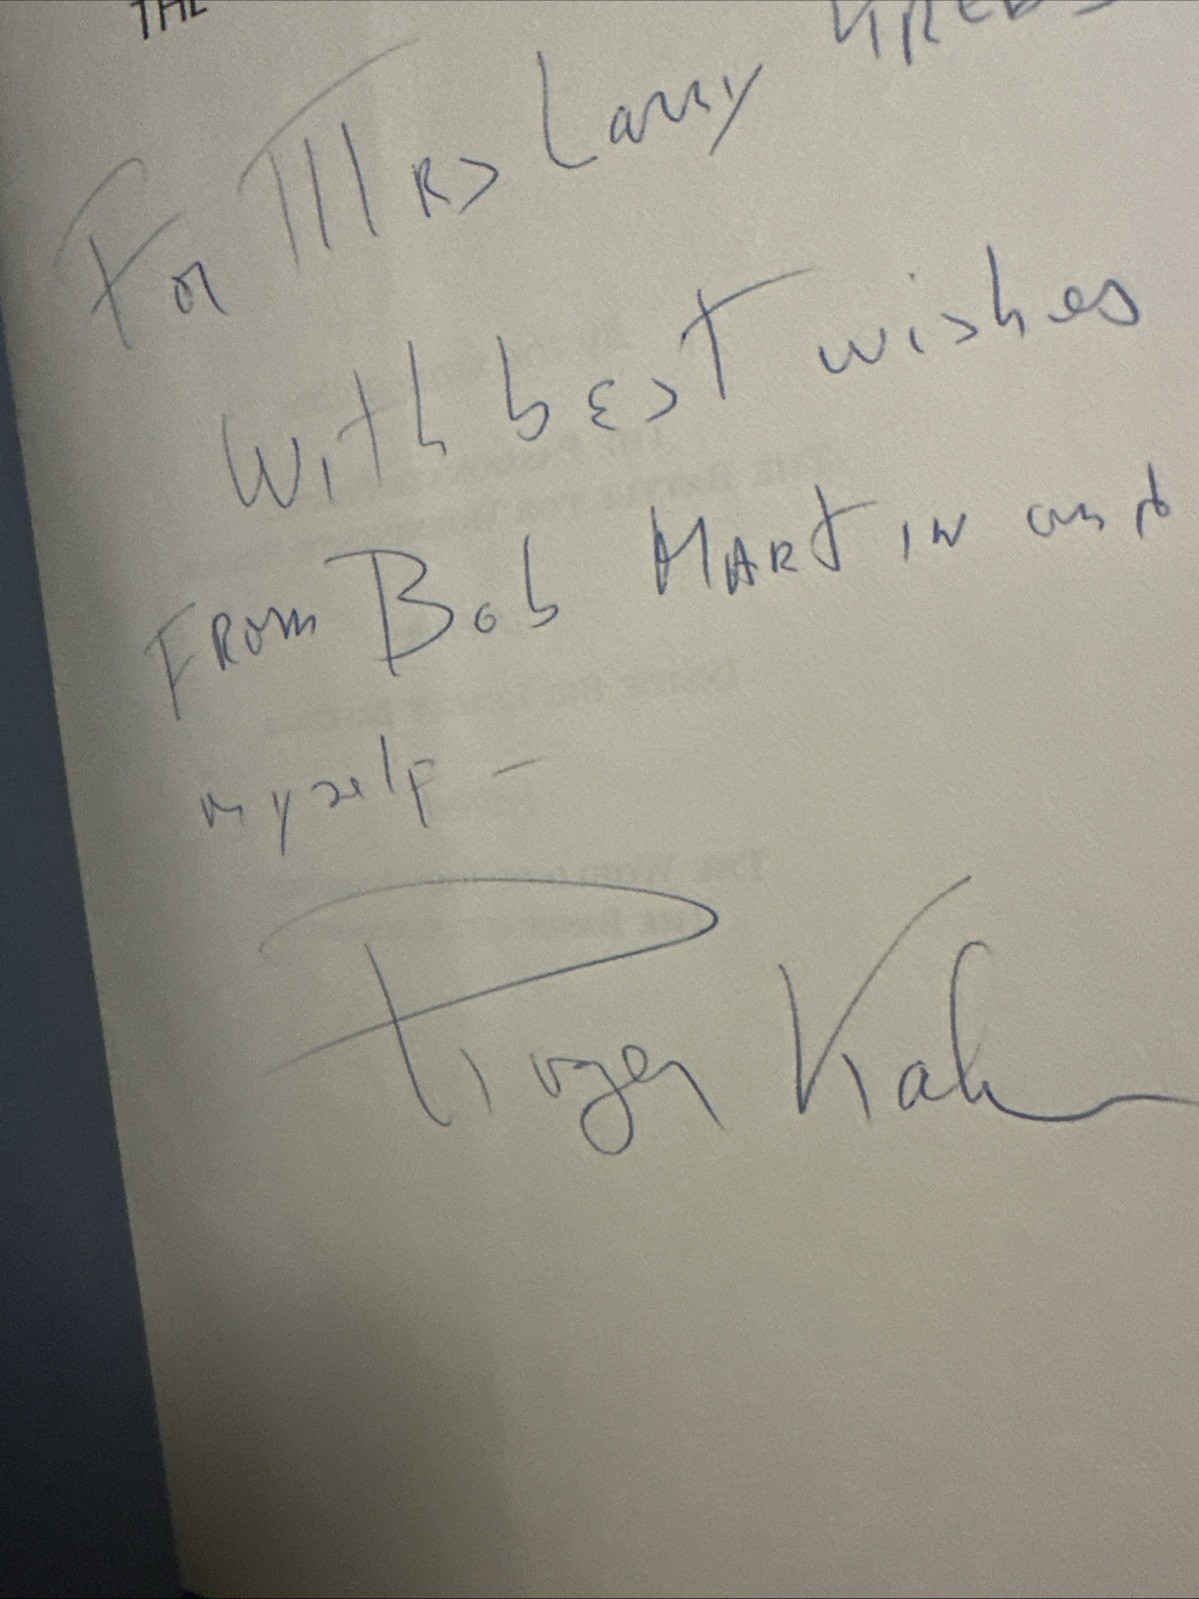 THE
For Mrs Larry Krebs
With best wishes
From Bob Martin and
myself –
Roger Kahn